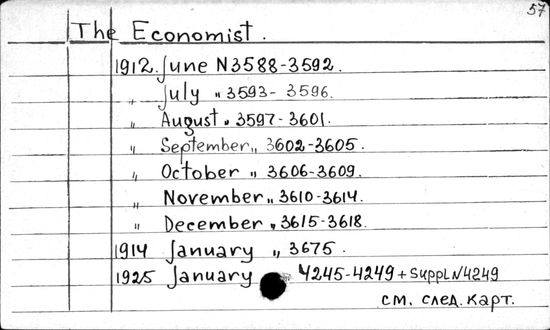 57
The Economist.
1912. June N 3588-3592.
„ July „ 3593-3596.
„ August „ 3597-3601.
„ September „ 3602-3605.
„ October „ 3606-3609.
„ November „ 3610-3614.
„ December „ 3615-3618.
1914 January „ 3675.
1925 January 4245-4249 + Suppl N 4249
см. след. карт.